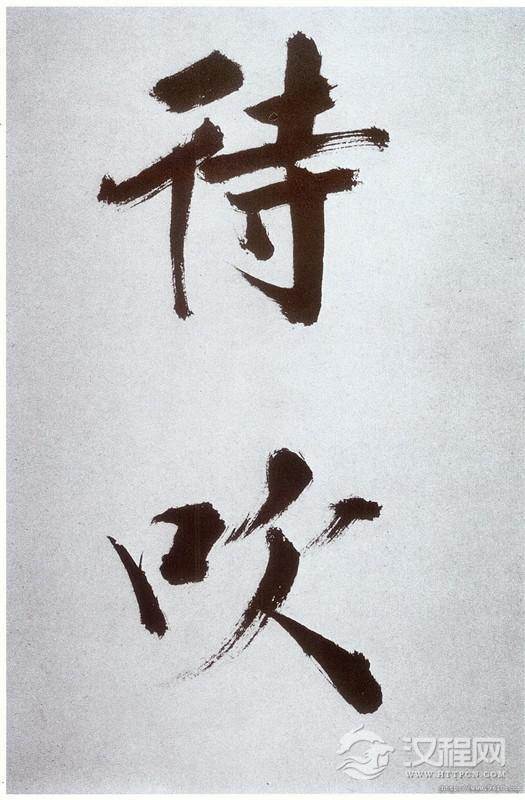 待
吹
汉程网
WWW.HTTPCN.COM